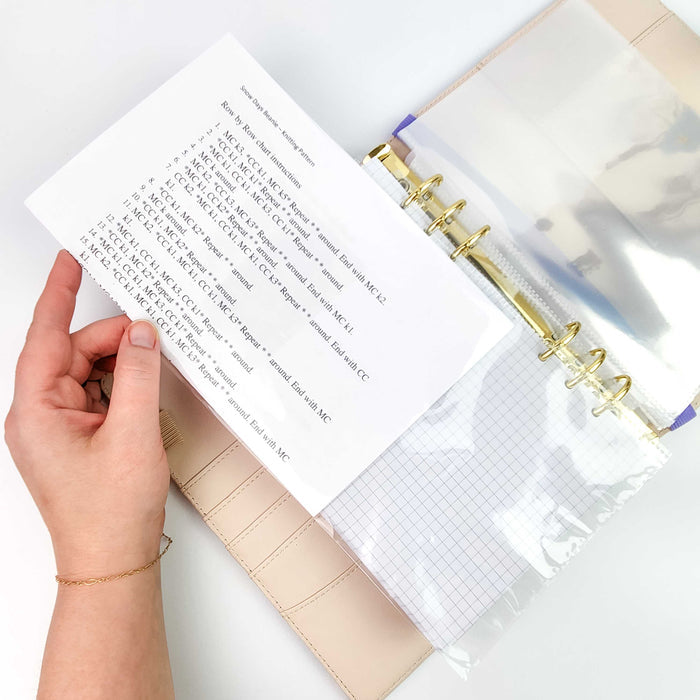 Snow Days Beanie – Knitting Pattern
Row by Row chart instructions
1. MC k3, *CC k1, MC k5* Repeat * * around. End with MC k2.
2. *CC k1, MC k1* Repeat * * around.
3. *MC k1, CC k1, MC k3, CC k1* Repeat * * around.
4. *MC k around.
5. MC k2, *CC k3, MC k3* Repeat * * around. End with MC k1.
6. *MC k1, CC k1, Repeat * * around.
CC k2, *MC k1, CC k1, MC k1, CC k3* Repeat * * around. End with CC
k1.
8. *CC k1, MC k2* Repeat * * around.
9. MC k around.
10. *CC k1, MC k2* Repeat * * around.
11. MC k2, *CC k1, MC k1, CC k1, MC k3* Repeat * * around. End with MC
k1.
12. *MC k1, CC k1, MC k3, CC k1* Repeat * * around.
13. Repeat * * around.
14. *MC k1, CC k1, MC k3, CC k1* Repeat * * around.
MC k2, *CC k1, MC k1, CC k1, MC k3* Repeat * * around. End with MC
k1.